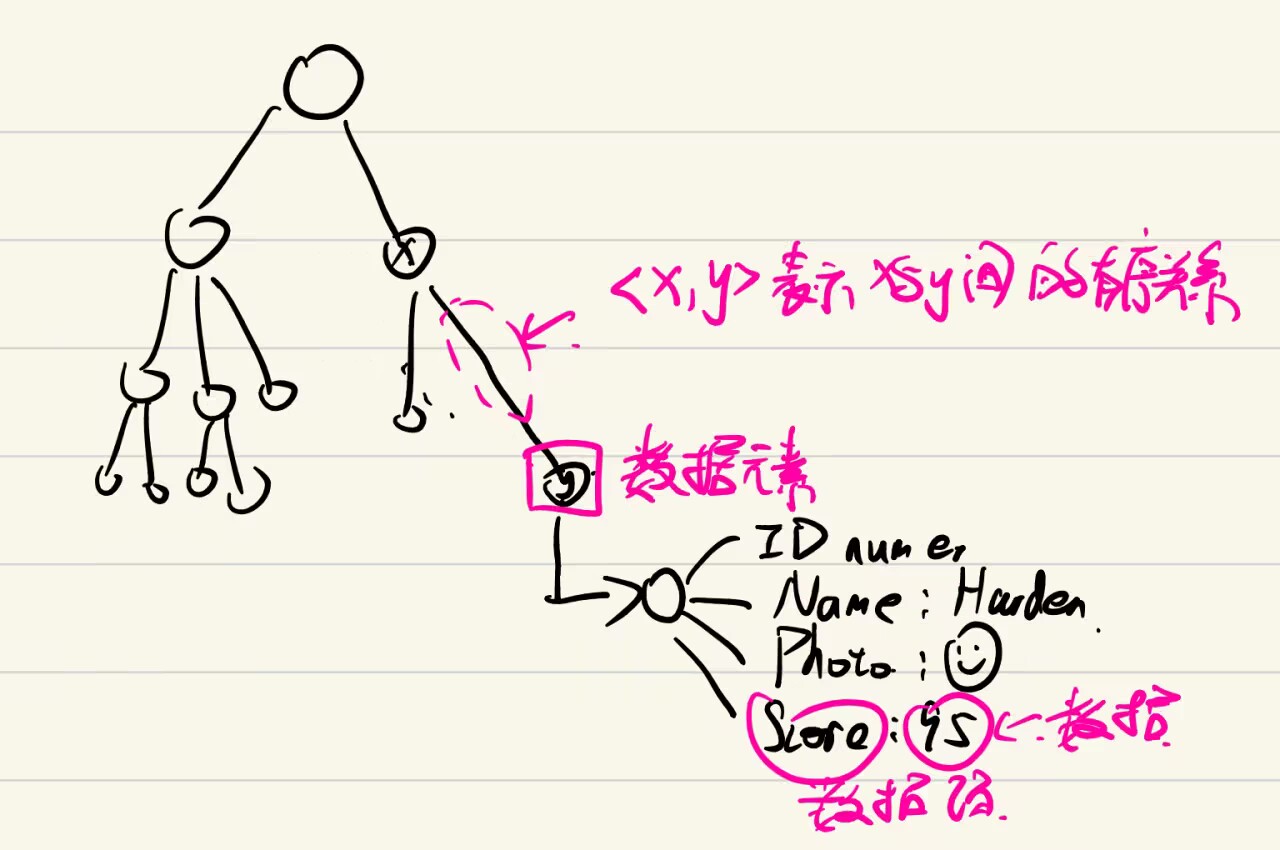 x
<x,y>表示 x与y间的有序关系
y
数据元素
ID numer
Name: Harden.
Photo:
Score: 95 ← 数据
数据项.